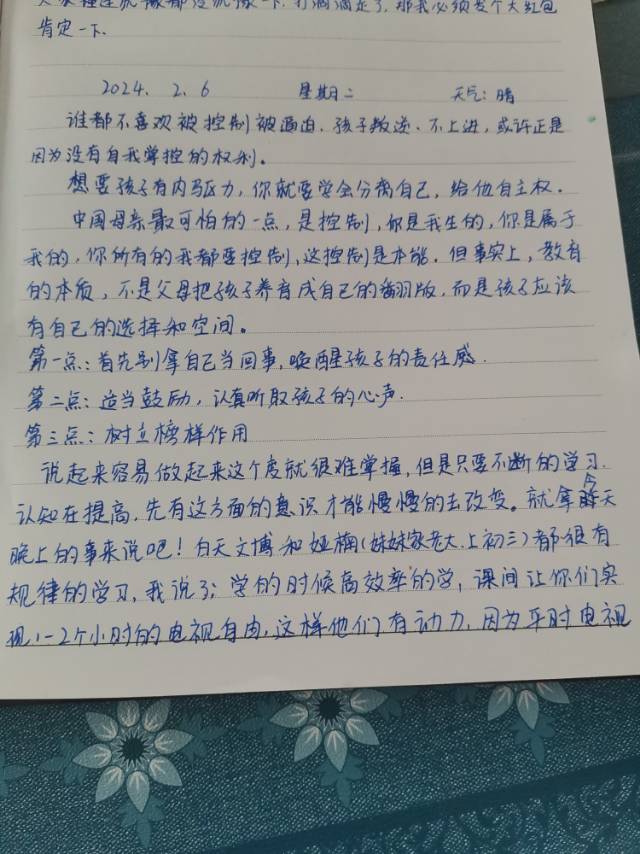 肯定一下.
2024. 2. 6 星期二 天气:晴
谁都不喜欢被控制被逼迫.孩子叛逆.不上进,或许正是
因为没有自我掌控的权利。
想要孩子有内驱力,你就要学会分离自己,给他自主权.
中国母亲最可怕的一点,是控制,你是我生的,你是属于
我的,你所有的我都要控制,这控制是本能.但事实上,教育
的本质,不是父母把孩子养育成自己的翻羽版,而是孩子应该
有自己的选择和空间。
第一点:首先别拿自己当回事,唤醒孩子的责任感.
第二点:适当鼓励,认真听取孩子的心声.
第三点:树立榜样作用
说起来容易做起来这个度就很难掌握,但是只要不断的学习.
认知在提高,先有这方面的意识才能慢慢的去改变。就拿今天
晚上的事来说吧!白天文博和娅楠(妹妹家老大.上初三)都很有
规律的学习,我说了;学的时候高效率的学,课间让你们实
现1-2个小时的电视自由,这样他们有动力,因为平时电视